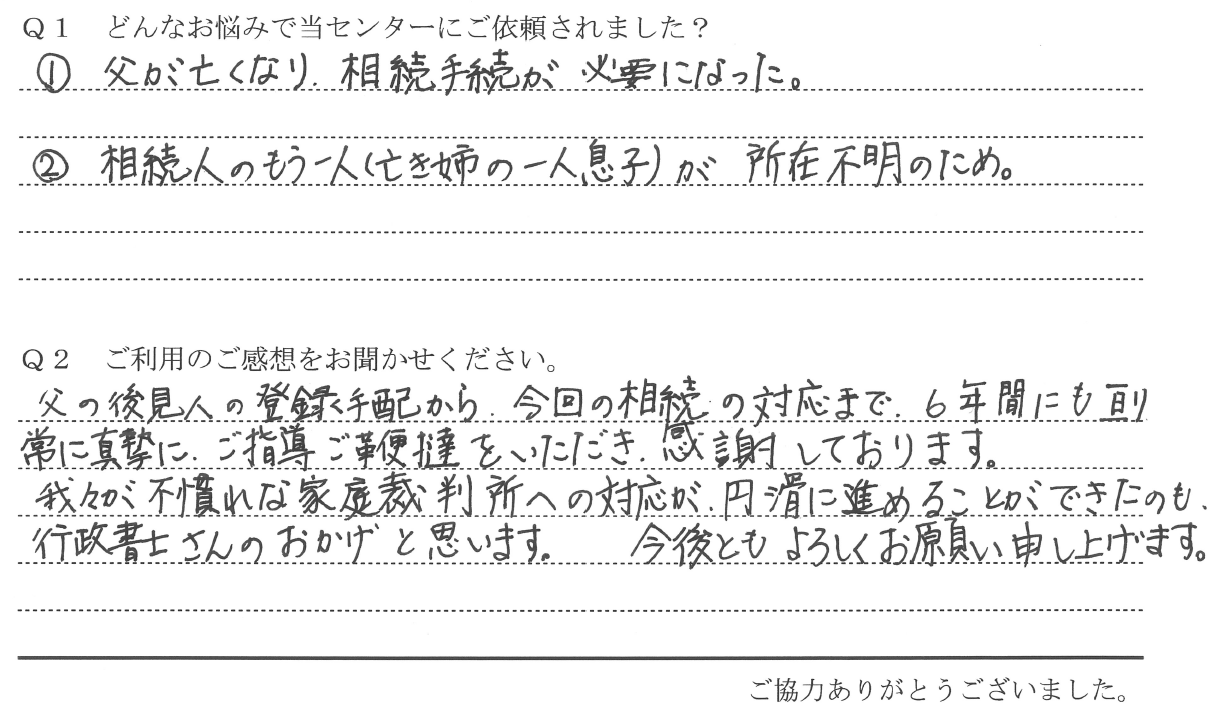 Q1 どんなお悩みで当センターにご依頼されました?
① 父が亡くなり、相続手続が必要になった。
② 相続人のもう一人(亡き姉の一人息子)が 所在不明のため。
Q2 ご利用のご感想をお聞かせください。
父の後見人の登録手配から、今回の相続の対応まで、6年間にも亘り
常に真摯に、ご指導ご鞭撻をいただき、感謝しております。
我々が不慣れな家庭裁判所への対応が、円滑に進めることができたのも、
行政書士さんのおかげと思います。 今後ともよろしくお願い申し上げます。
ご協力ありがとうございました。